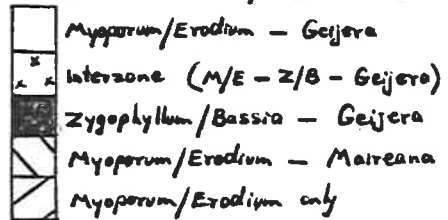 Myoporum/Erodium – Geijera
Interzone (M/E – Z/B – Geijera)
Zygophyllum/Bassia – Geijera
Myoporum/Erodium – Maireana
Myoporum/Erodium only